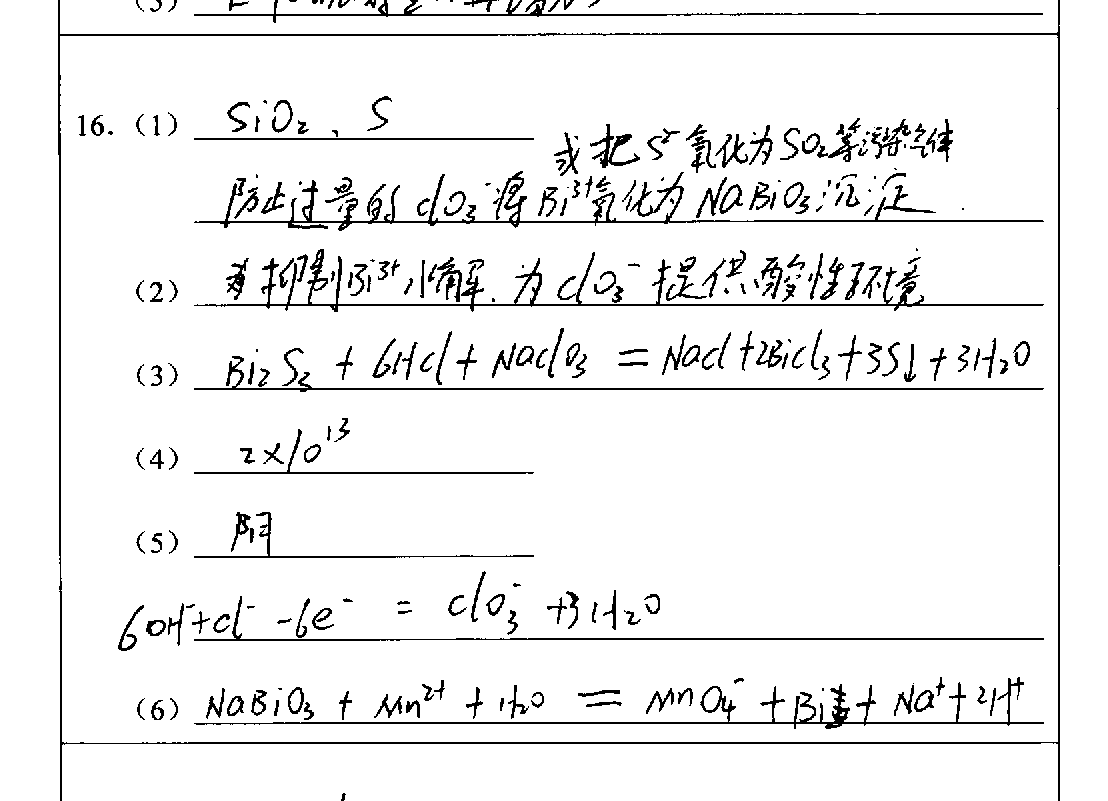 (3)
16. (1) SiO₂、S
或把S²⁻氧化为SO₂等污染气体
防止过量的ClO₃⁻将Bi³⁺氧化为NaBiO₃沉淀.
(2) 抑制Bi³⁺水解.为ClO₃⁻提供酸性环境
(3) Bi₂S₃ + 6HCl + NaClO₃ = NaCl + 2BiCl₃ + 3S↓ + 3H₂O
(4) 2×10¹³
(5) 阴
6OH⁻+Cl⁻ -6e⁻ = ClO₃⁻ +3H₂O
(6) NaBiO₃ + Mn²⁺ + H₂O = MnO₄⁻ + Bi + Na⁺ + 2H⁺